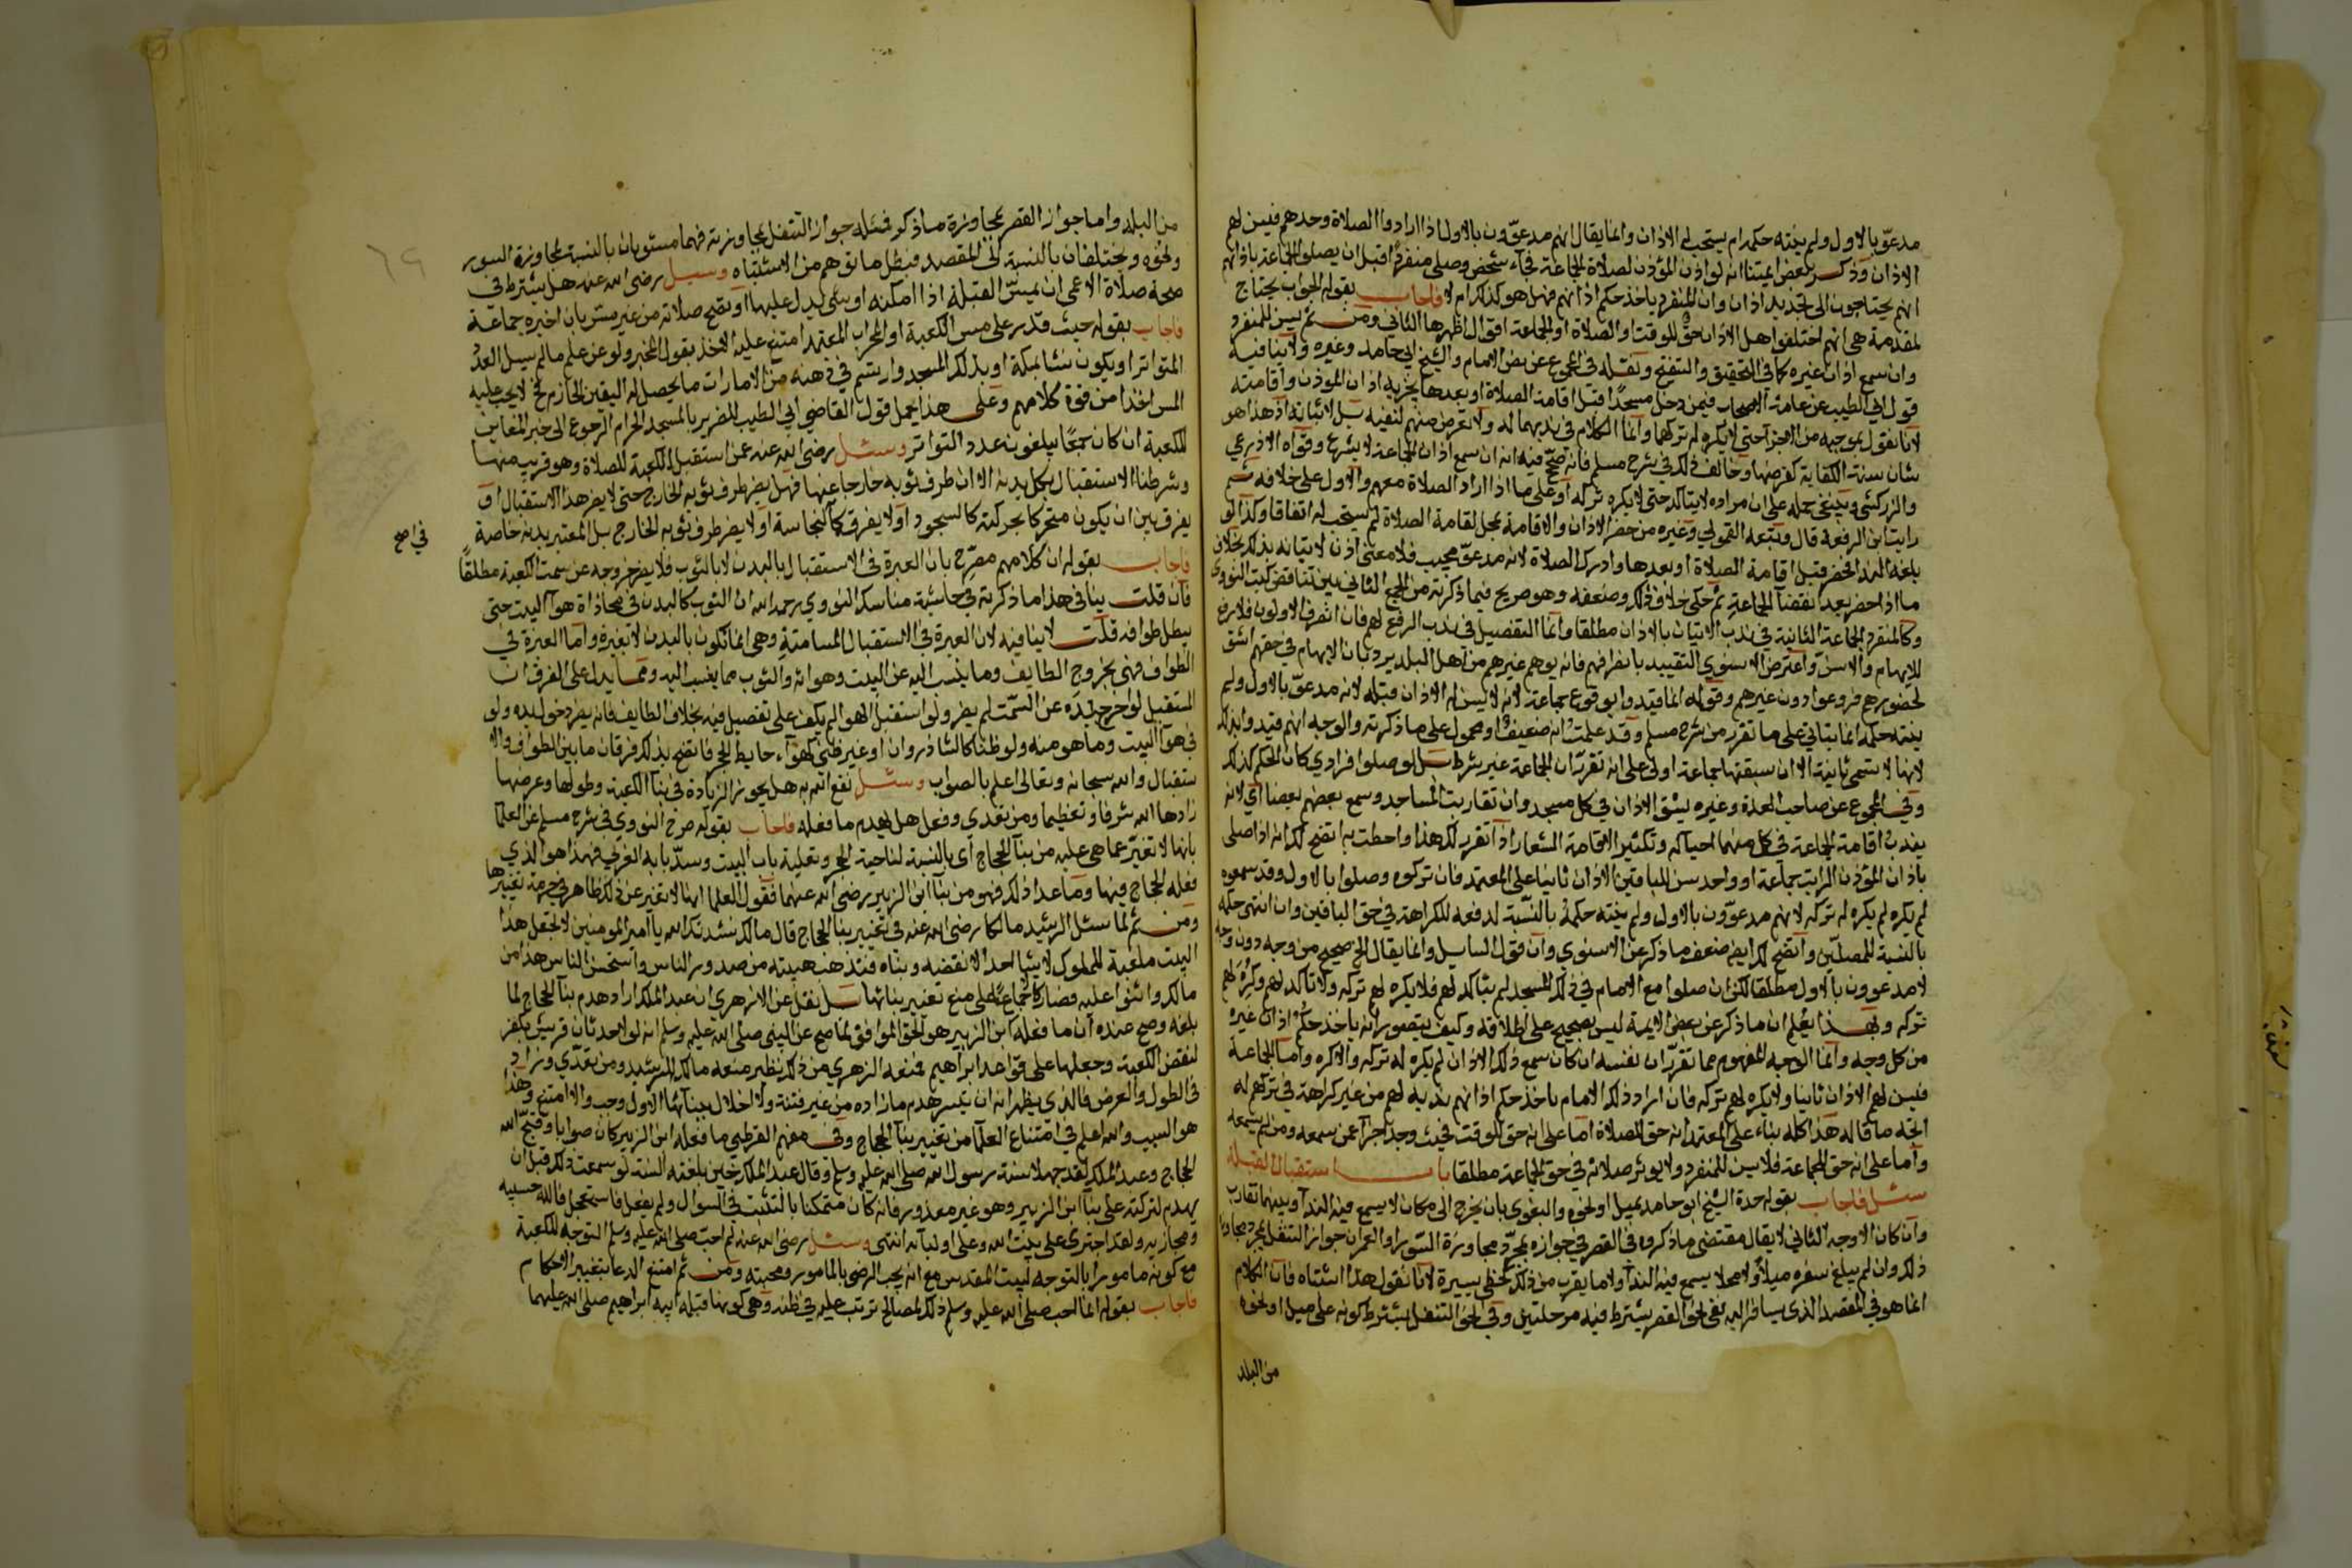 مدعوّ بالاول ولم ينته حكمه ام يستحب له الاذان وانما يقال انهم مدعوّون بالاول اذا ارادوا الصلاة وحدهم فيسن لهم
الاذان وذكر بعض ايمتنا انه لو اذن المؤذن لصلاة الجماعة فجاء شخص وصلى منفردا قبل ان يصلوا الجماعة باذانهم
انهم يحتاجون الى تجديد اذان وان المنفرد ياخذ حكم اذانهم فهل هو كذلك ام لا فاجاب بقوله الجواب يحتاج
لمقدمة هي انهم اختلفوا هل الاذان حق للوقت او الصلاة او الجماعة اقوال اظهرها الثاني ومن ثم يسن للمنفرد
وان سمع اذان غيره كما في التحقيق والتنقيح ونقله في المجموع عن نص الامام والشيخ ابي حامد وغيره ولا ينافيه
قول ابي الطيب عن عامة الاصحاب فيمن دخل مسجدا قبل اقامة الصلاة او بعدها يجزيه اذان المؤذن واقامته
لانا نقول بموجبه من الاجزآ حتى لا يكره له تركهما وانما الكلام في ندبهما له ولا تعرض منهم لنفيه بل لاثباته اذ هذا هو
شان سنة الكفاية كفرضها وخالف ذلك في شرح مسلم فانه صحّ فيه انه ان سمع اذان الجماعة لا يشرع وقوّاه الاذرعي
والزركشي وينبغي حمله على ان مراده لا يتاكد حتى لا يكره تركه او على ما اذا اراد الصلاة معهم والاول على خلافه ثم
رايت ابن الرفعة قال وتبعه القمولي وغيره من حضر الاذان والاقامة بمحل لقامة الصلاة لم يستحب له اتفاقا وكذا لو
بلغه الندا فحضر قبل اقامة الصلاة او بعدها وادرك الصلاة لانه مدعوّ مجيب فلا معنى اذن لاتيانه بذلك بخلاف
ما اذا حضر بعد انقضآ الجماعة ثم حكى خلاف ذلك وضعفه وهو صريح فيما ذكرته من الجمع الثاني بين تناقض كتب النووي
وكالمنفرد الجماعة الثانية في ندب الاتيان بالاذان مطلقا وانما التفصيل في ندب الرفع لهم فان انصرف الاولون فلا رفع
للايهام والا سنّ واعترض الاسنوي التقييد بانصرافهم فانه يوهم غيرهم من اهل البلد ويرد بان الايهام في حقهم اشق
لحضورهم فروعوا دون غيرهم وقوله انما قيدوا بوقوع جماعة لانه لا يسن له الاذان قبله لانه مدعوّ بالاول ولم
ينته حكمه انما يتاتي على ما تقرر من شرح مسلم وقد علمت انه ضعيف او محمول على ما ذكرته والوجه انهم قيدوا بذلك
لانها لا تسمى ثانية الا ان سبقتها جماعة اولى على انه تقرر ان الجماعة غير شرط بل لو صلوا فرادى كان الحكم كذلك
وفي المجموع عن صاحب العدة وغيره ليشق الاذان في كل مسجد وان تقاربت المساجد وسمع بعضهم بعضا اي لانه
يندب اقامة الجماعة في كل منهما احياله وتكثير الاقامة الشعار اذا تقرر لك هذا واحطت به اتضح لك انه اذا صلى
باذان المؤذن الراتب جماعة او واحد سن للباقين الاذان ثانيا على المعتمد فان تركوه وصلوا بالاول وقد سمعوه
لم يكره لم يكره له تركه لانهم مدعوّون بالاول ولم ينته حكمه بالنسبة لدفعه للكراهة في حق الباقين وان انتهى حكمه
بالنسبة للمصلين واتضح لك ايضا ضعف ما ذكر عن الاسنوي وان قول السايل وانما يقال الخ صحيح من وجه دون وجه
لا مدعوون بالاول مطلقا لكن ان صلوا مع الامام في ذلك المسجد لم يتاكد لهم فلا يكره لهم تركه والا تاكد لهم وكره لهم
تركه وبهذا يعلم ان ما ذكر عن بعض الايمة ليس بصحيح على اطلاقه وكيف يتصور انه ياخذ حكم اذان غيره
من كل وجه وانما الوجه المفهوم مما تقرر ان نفسه ان كان سمع ذلك الاذان لم يكره له تركه والا كره واما الجماعة
فيسن لهم الاذان ثانيا ولا يكره لهم تركه فان اراد ذلك الامام باخذ حكم اذانهم ندبه لهم من غير كراهة في تركهم له
اتجه ما قاله هذا كله بناء على المعتمد انه حق للصلاة اما على انه حق للوقت فحيث وجد اجزآ عمن سمعه ومن لم يسمعه
واما على انه حق للجماعة فلا يسن للمنفرد ولا يوثر صلاته في حق الجماعة مطلقا باب استقبال القبلة
سئل فاجاب بقوله حدة الشيخ ابو حامد بميل او نحوه والبغوي بان يخرج الى مكان لا يسمع فيه الندآ وبينهما تقارب
وان كان الاوجه الثاني لا يقال مقتضى ما ذكروه في القصر في جوازه بمجرد مجاورة السور او العمران جواز التنفل بمجرد مجاوزة
ذلك وان لم يبلغ سفره ميلا ولا محلا يسمع فيه الندآ ولا ما يقرب من ذلك كخطى يسيرة لانا نقول هذا اشتباه فان الكلام
انما هو في المقصد الذي يسافر اليه ففي نحو القصر يشترط فيه مرحلتين وفي نحو التنفل يشترط كونه على ميل او نحوه
من البلد
من البلد واما جواز القصر بمجاوزة ما ذكر فمثله جواز التنفل بمجاوزته فهما مستويان بالنسبة لمجاوزة السور
ونحوه ويختلفان بالنسبة الى المقصد فبطل ما توهم من الاشتباه وسيل رضي الله عنه هل يشترط في
صحة صلاة الاعمى ان يمسّ القبلة اذا امكنه او شي يدل عليها او تصح صلاته من غير مسّ بان اخبره جماعة
فاجاب بقوله حيث قدر على مس الكعبة او المحراب المعتمد امتنع عليه الاخذ بقول المخبر ولو عن علم ما لم يبلغ العدد
المتواتر او يكون نشا بمكة او بذلك المسجد وارتسم في ذهنه من الامارات ما يحصل له اليقين الجازم فحينئذ لا يجب عليه
المس اخذا من قوة كلامهم وعلى هذا يحمل قول القاضي ابي الطيب للضرير بالمسجد الحرام الرجوع الى خبر المعاين
للكعبة ان كان جمعا يبلغون عدد التواتر وسئل رضي الله عنه عمن استقبل الكعبة للصلاة وهو قريب منها
وشرطنا الاستقبال بكل بدنه الا ان طرف ثوبه خارجا عنها فهل يضر طرف ثوبه الخارج حتى لا يضر هذا الاستقبال او
يفرق بين ان يكون متحركا بحركته كالسجود او لا يفرق كالنجاسة او لا يضر طرف ثوبه الخارج بل المعتبر بدنه خاصة
فاجاب بقوله ان كلامهم مصرح بان العبرة في الاستقبال بالبدن لا بالثوب فلا يضر خروجه عن سمت الكعبة مطلقا
في اصح
فان قلت ينافي هذا ما ذكرته في حاشية مناسك النووي رحمه الله ان الثوب كالبدن في محاذاة هوآ البيت حتى
يبطل طوافه قلت لا ينافيه لان العبرة في الاستقبال المسامتة وهي انما تكون بالبدن لا بغيره واما العبرة في
الطواف فهي بخروج الطايف وما ينسب اليه عن البيت وهوائه والثوب مما ينسب اليه ومما يدل على الفرق ان
المستقبل لو اخرج يده عن السمت لم يضر ولو استقبل الهوا لم يكف على تفصيل فيه بخلاف الطايف فانه يضر دخول يده ولو
في هوآ البيت وما هو منه ولو ظنا كالشاذروان او غير ظني كهوآء حايط الحجر فاتضح بذلك فرقان ما بين الطواف والا
ستقبال والله سبحانه وتعالى اعلم بالصواب وسئل نفع الله به هل يجوز الزيادة في بنآ الكعبة وطولها وعرضها
زادها الله شرفا وتعظيما ومن تعدى وفعل هل يهدم ما فعله فاجاب بقوله صرح النووي في شرح مسلم عن العلما
بانها لا تغير عما هي عليه من بنآ الحجاج اي بالنسبة لناحية الحجر وتعلية باب البيت وسدّ بابه الغربي فهذا هو الذي
فعله الحجاج فيها وما عدا ذلك فهو من بنآ ابن الزبير رضي الله عنهما فقول العلما انها لا تغير عن ذلك ظاهر في حرمة تغييرها
ومن ثم لما سئل الرشيد مالكا رضي الله عنه في تغيير بنا الحجاج قال مالك نشدتك الله يا امير المومنين لا تجعل هذا
البيت ملعبة للملوك لا يشا احد الا نقضه وبناه فتذهب هيبته من صدور الناس واستحسن الناس هذا من
مالك واثنوا عليه فصار كالاجماع على منع تغيير بنائها بل نقل عن الازهري ان عبد الملك اراد هدم بنآ الحجاج لما
بلغه وصح عنده ان ما فعله ابن الزبير هو الحق الموافق لما صح عن النبي صلى الله عليه وسلم انه لولا حدثان قريش بكفر
لنقض الكعبة وجعلها على قواعد ابراهيم فمنعه الزهري من ذلك نظير منعه مالك للرشيد ومن تعدى وزاد
في الطول والعرض فالذي يظهر انه ان تيسر هدم ما زاده من غير فتنة ولا اخلال ببنآئها الاول وجب والا امتنع وهذا
هو السبب والله اعلم في امتناع العلمآ من تغيير بنآ الحجاج وفي مفهم القرطبي ما فعله ابن الزبير كان صوابا وقبح الله
الحجاج وعبد الملك لقد جهلا سنة رسول الله صلى الله عليه وسلم وقال عبد الملك حين بلغته السنة لو سمعت ذلك قبل ان
يهدم لتركته على بنآ ابن الزبير وهو غير معذور فانه كان متمكنا بالتثبت في السوال ولم يفعل فاستعجل فالله حسيبه
ومجازيه ولقد اجترى على بيت الله وعلى اوليآئه انتهى وسئل رضي الله عنه لم احب صلى الله عليه وسلم التوجه للكعبة
مع كونه مامورا بالتوجه لبيت المقدس مع انه يجب الرضى بالمامور ومحبته ومن ثم امتنع الدعا بتغيير الاحكام
فاجاب بقوله انما احب صلى الله عليه وسلم ذلك لمصالح ترتب عليه في ظنه وهي كونها قبلة ابيه ابراهيم صلى الله عليهما